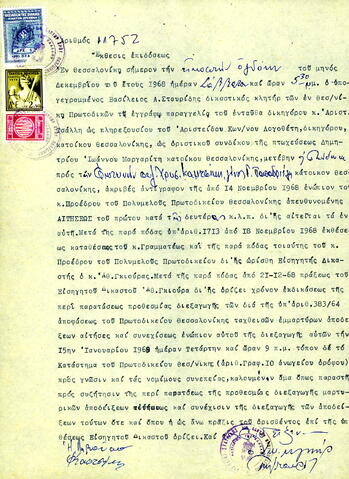 Ἀριθμός 11752
Ἔκθεσις ἐπιδόσεως
Ἐν Θεσσαλονίκῃ σήμερον τήν εἰκοστήν ὀγδόην τοῦ μηνός
Δεκεμβρίου τοῦ ἔτους 1968 ἡμέραν Σάββατον καί ὥραν 5 30 μμ. ὁ ὑπο-
γεγραμμένος Βασίλειος Α.Σταυρίδης δικαστικός κλητήρ τῶν ἐν Θεσ/νί-
κῃ Πρωτοδικῶν τῇ ἐγγράφῳ παραγγελίᾳ τοῦ ἐνταῦθα δικηγόρου κ.Ἀρισ-
τσάλλη ὡς πληρεξουσίου τοῦ Ἀριστείδου Κων/νου Λογοθέτη,δικηγόρου,
κατοίκου Θεσσαλονίκης, ὡς ὁριστικοῦ συνδίκου τῆς πτωχεύσεως Δημητρίου
Ἰωάννου Μαργαρίτη κατοίκου Θεσσαλονίκης,μετέβην
πρός τῶν κάτοικον Θεσ-
σαλονίκης, ἀκριβές ἀντίγραφον τῆς ἀπό 14 Νοεμβρίου 1968 ἐνώπιον τοῦ
κ.Προέδρου τοῦ Πολυμελοῦς Πρωτοδικείου Θεσσαλονίκης ἀπευθυνομένης
ΑΙΤΗΣΕΩΣ τοῦ πρώτου κατά τῶν δευτέρων κ.λ.π. δι'ἧς αἰτεῖται τά ἐν
αὐτῇ.Μετά τῆς παρά πόδας ὑπ'ἀριθ.1713 ἀπό 18 Νοεμβρίου 1968 ἐκθέσεως
καταθέσεως τοῦ κ.Γραμματέως καί τῆς παρά πόδας τοιαύτης τοῦ κ.
Προέδρου τοῦ Πολυμελοῦς Πρωτοδικείου δι'ἧς ὡρίσθη Εἰσηγητής Δικασ-
τής ὁ κ.Ἀθ.Γκιούρας.Μετά τῆς παρά πόδας ἀπό 21-12-68 πράξεως τοῦ
Εἰσηγητοῦ Δικαστοῦ Ἀθ.Γκιούρα δι'ἧς ὁρίζει χρόνον ἐκδικάσεως τῆς
περί παρατάσεως προθεσμίας διεξαγωγῆς τῶν διά τῆς ὑπ'ἀριθ.383/64
ἀποφάσεως τοῦ Πρωτοδικείου Θεσσαλονίκης ταχθεισῶν ἐμμαρτύρων ἀποδεί-
ξεων αἰτήσεως καί συνεχίσεως ἐνώπιον αὐτοῦ τῆς διεξαγωγῆς αὐτῶν τήν
15ην Ἰανουαρίου 1969 ἡμέραν Τετάρτην καί ὥραν 9 π.μ. τόπον δέ τό
Κατάστημα τοῦ Πρωτοδικείου Θεσ/νίκης (ἀριθ.Γραφ.10 ἀνωγείου ὀρόφου)
πρός γνῶσιν καί τάς νομίμους συνεπείας,καλουμένων ἅμα ὅπως παραστῇ
πρός συζήτησιν τῆς περί παρατάσεως τῆς προθεσμίας διεξαγωγῆς μαρ-
τυρικῶν ἀποδείξεων αἰτήσεως καί συνέχισιν τῆς διεξαγωγῆς τῶν ἀποδεί-
ξεων τούτων ὅτε καί ὅπου ἡ ὡς ἄνω πρᾶξις τοῦ ὁρισθέντος ἐπί τῆς ὑπο-
θέσεως Εἰσηγητοῦ Δικαστοῦ ὁρίζει.Καί